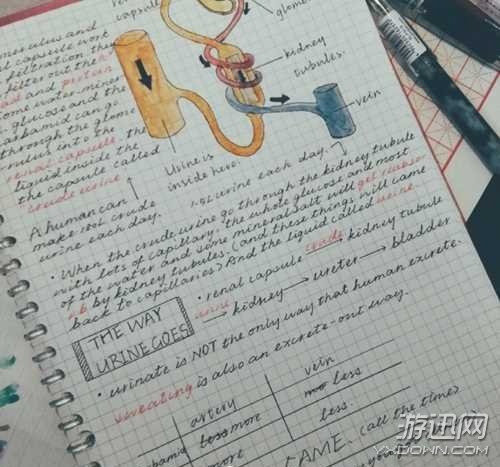 capsule
glome
kidney
tubules.
vein
Urine is
inside here.
and
capsule work
filtration, they
filter out the
and protein
some water, miner
glucose and the
can go
through the glome
into the
renal capsule. the
liquid inside the
the capsule called
crude urine
A human can
make 180L crude
urine each day.
urine each day.
· When the crude urine go through the kidney tubule
with lots of capillary. the whole glucose and most
of the water and some mineral salt will get reabsor
b by kidney tubules. (and these things will came
back to capillaries) And the liquid called urine.
THE WAY
URINE GOES
· renal capsule crude kidney tubule
urine → kidney → ureter → bladder
· urinate is NOT the only way that human excrete.
sweating is also an excrete-out way.
artery
vein
less more
less
more
less.
AME. (all the time)
游迅网
YXDOWN.COM